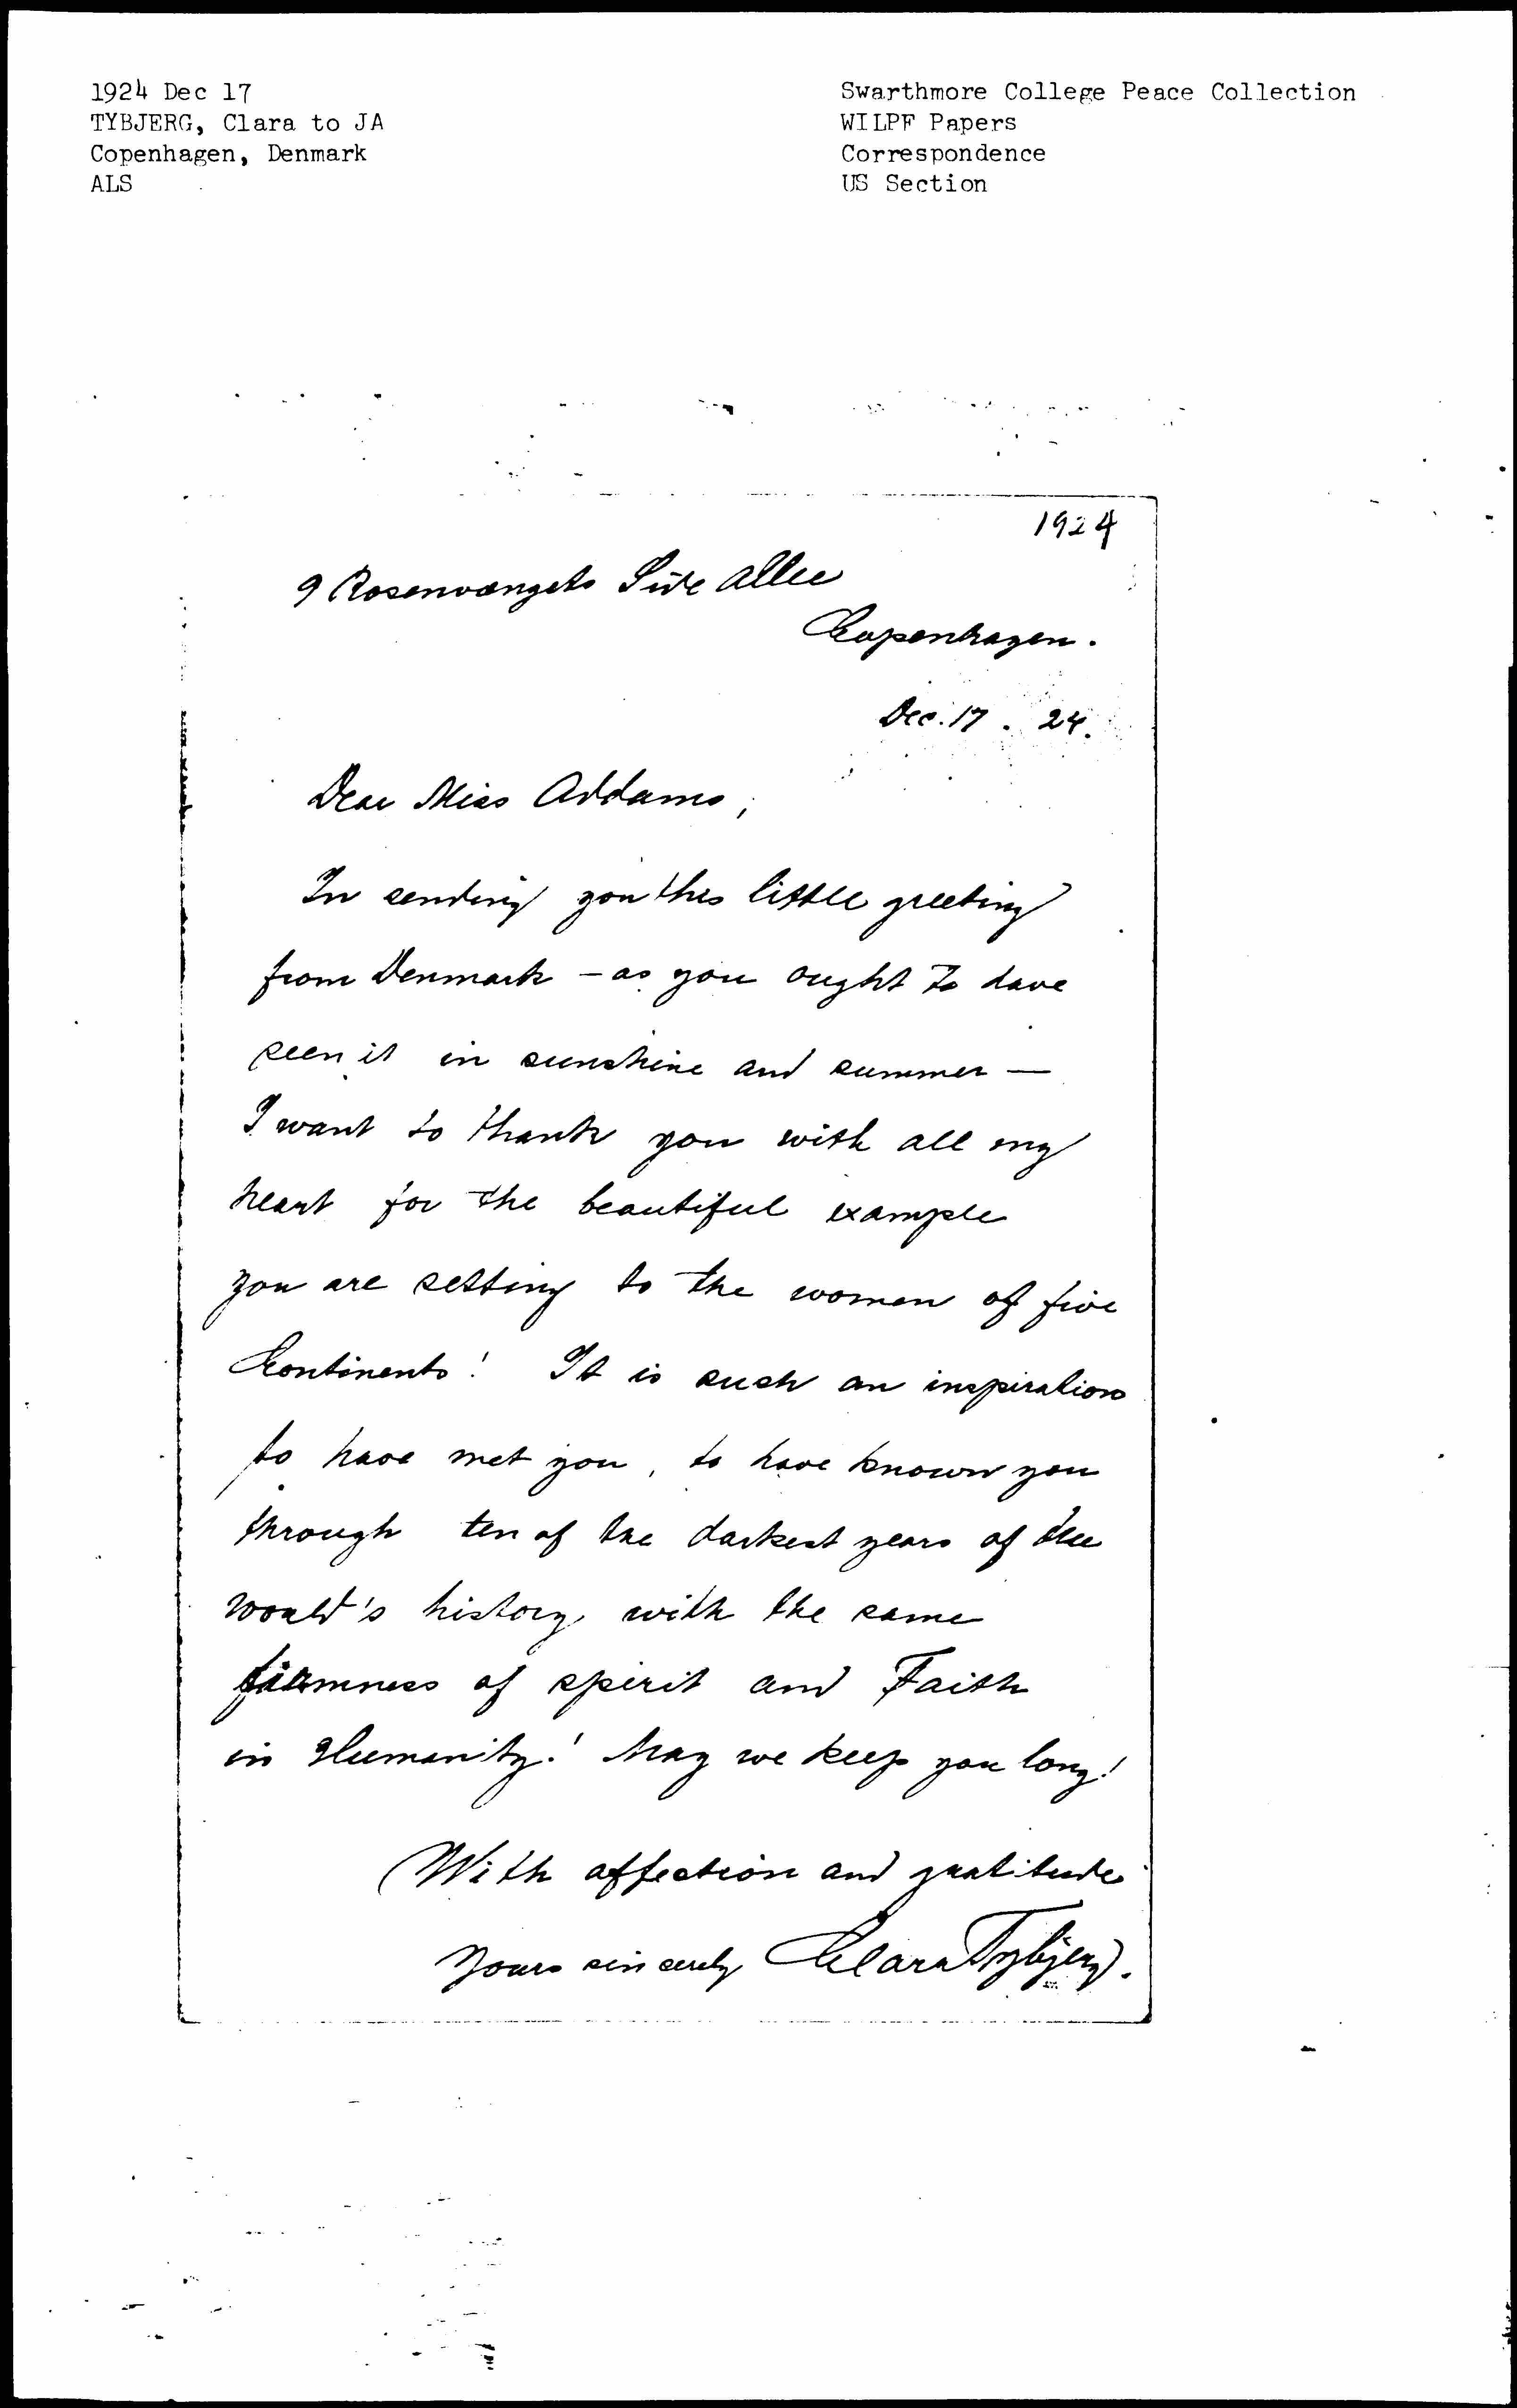 1924 Dec 17
TYBJERG, Clara to JA
Copenhagen, Denmark
ALS
Swarthmore College Peace Collection
WILPF Papers
Correspondence
US Section
1924
9 Rosenvangets Side Allee
Copenhagen.
Dec. 17. 24.
Dear Miss Addams,
In sending you this little greeting
from Denmark – as you ought to have
seen it in sunshine and summer —
I want to thank you with all my
heart for the beautiful example
you are setting to the women of five
Continents! It is such an inspiration
to have met you, to have known you
through ten of the darkest years of the
world's history with the same
firmness of spirit and Faith
in Humanity! May we keep you long!
With affection and gratitude
Yours sincerely Clara Tybjerg.